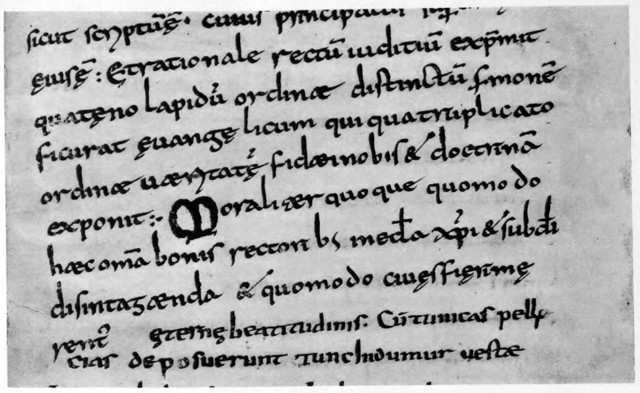 sicut scriptū ę̄. cuius principatu
ęiusē: Et rationale rectū iuditiū exp̄mit
quatęno lapidū ordinæ distinctū. smonē
ficurat ęuangęlicum qui quatriplicato
ordinæ uæritatę̄ fidæi nobis & doctrinā
exponit:· Moraliær quoque quomodo
hæc om̄a bonis rectorib; in eccła xp̄i & subdi
disint agænda & quomodo ciuęs fierimę
rent᷑ ęternę beatitudinis: Cū tunicas pelli
cias deposuerunt tunc induimur uestæ